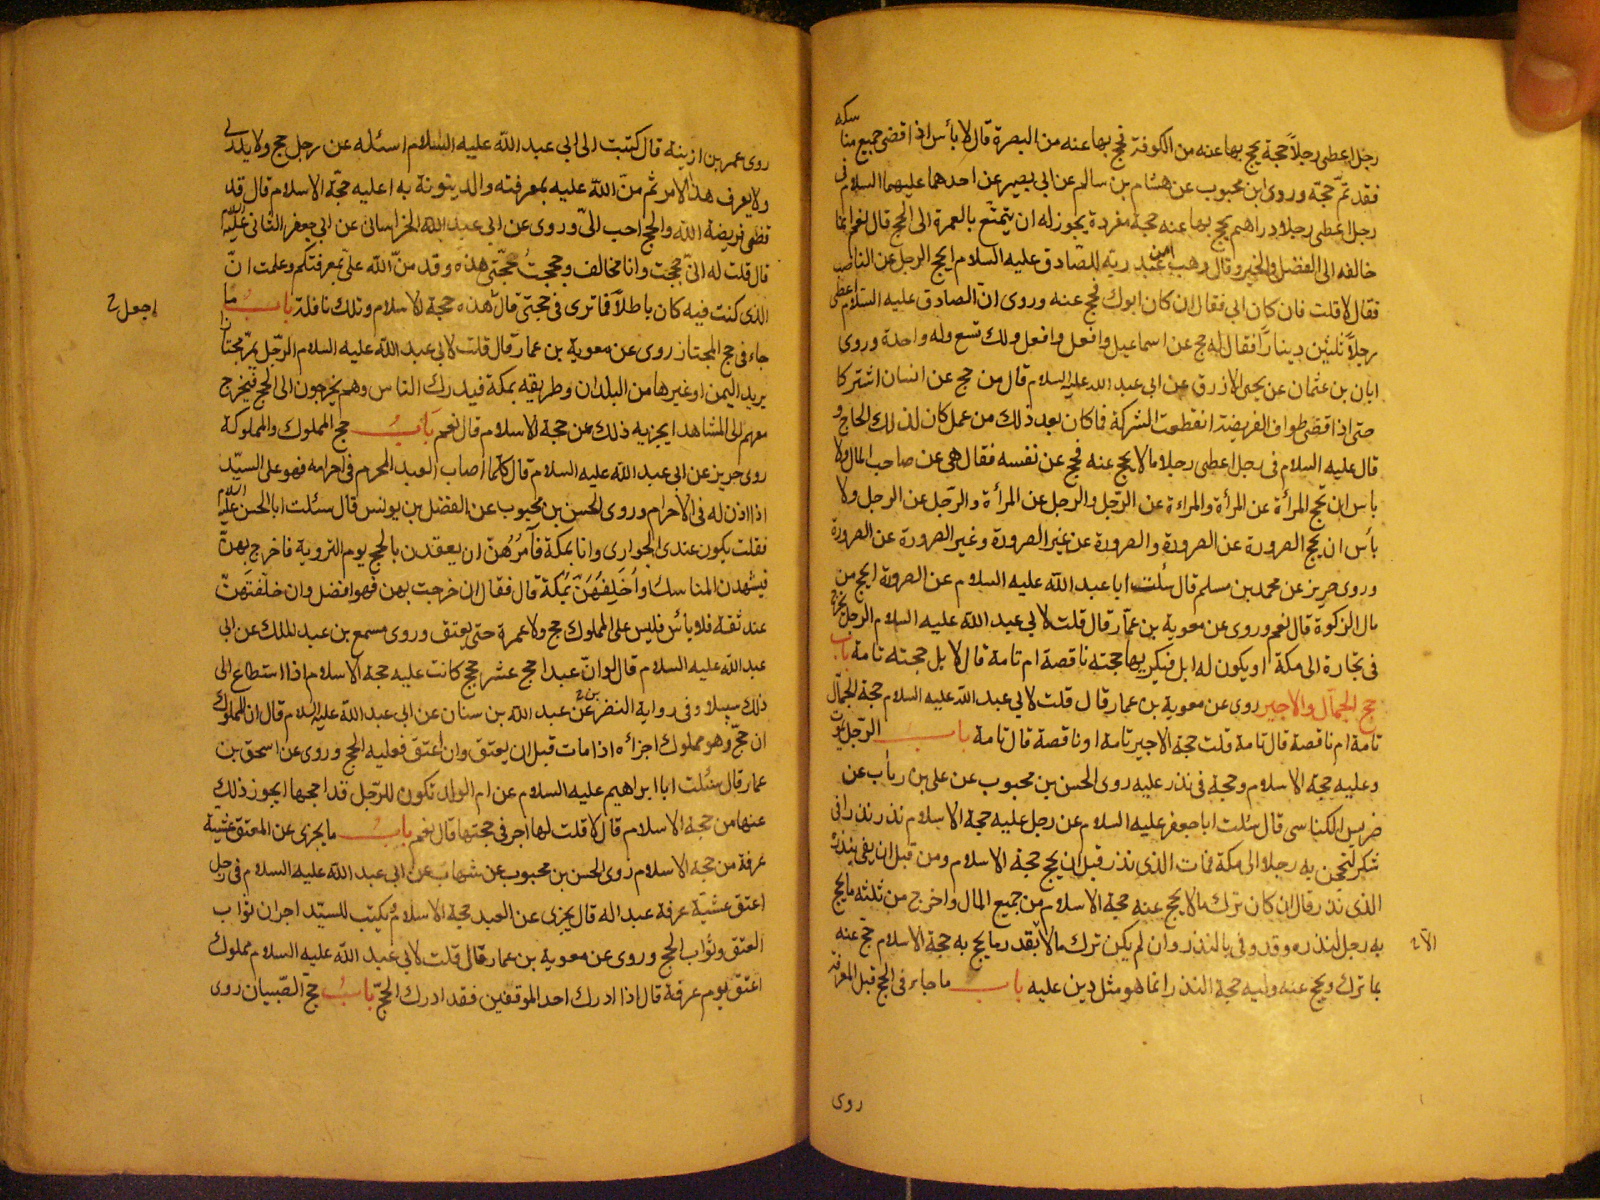 رجل اعطى رجلاً حجة يحج بها عنه من الكوفة فحج بها عنه من البصرة قال لا بأس اذا قضى جميع مناسكه
فقد تمّ حجّه وروى ابن محبوب عن هشام بن سالم عن ابى بصير عن احدهما عليهما السلام فى
رجل اعطى رجلا دراهم يحج بها عنه حجة مفردة يجوز له ان يتمتّع بالعمرة الى الحج قال نعم انما
خالفه الى الفضل والخير وقال وهب بن عبد ربه للصادق عليه السلام ايحج الرجل عن الناصب
فقال لا قلت فان كان ابى فقال ان كان ابوك فحج عنه وروى انّ الصادق عليه السلام اعطى
رجلاً ثلثين ديناراً فقال له حج عن اسماعيل وافعل وافعل ولك تسع وله واحدة وروى
ابان بن عثمان عن يحيى الازرق عن ابى عبد الله عليه السلام قال من حج عن انسان اشتركا
حتى اذا قضى طواف الفريضة انقطعت الشركة فما كان بعد ذلك من عمل كان لذلك الحاج و
قال عليه السلام فى رجل اعطى رجلا مالا يحج عنه فحج عن نفسه فقال هى عن صاحب المال ولا
بأس ان تحج المرأة عن المرأة والمراءة عن الرّجل والرجل عن المرأة والرّجل عن الرجل ولا
بأس ان يحج الصرورة عن الصرورة والصرورة عن غير الصرورة وغير الصرورة عن الصرورة
وروى حريز عن محمد بن مسلم قال سئلت ابا عبد الله عليه السلام عن الصرورة ايحج من
مال الزكوة قال نعم وروى عن معوية بن عمّار قال قلت لابى عبد الله عليه السلام الرجل يخرج
فى تجارة الى مكة او يكون له ابل فيكريها حجته ناقصة ام تامة قال لا بل حجته تامة باب
حج الجمّال والاجير روى عن معوية بن عمار قال قلت لابى عبد الله عليه السلام حجة الجمّال
تامة ام ناقصة قال تامة قلت حجة الاجير تامة او ناقصة قال تامة باب الرّجل يموت
وعليه حجة الاسلام وحجة فى نذر عليه روى الحسن بن محبوب عن على بن رياب عن
ضريس الكناسى قال سئلت ابا جعفر عليه السلام عن رجل عليه حجة الاسلام نذر نذرا فى
شكر ليحجن به رجلا الى مكة فمات الذى نذر قبل ان يحج حجة الاسلام ومن قبل ان يفى بنذره
الذى نذر قال ان كان ترك مالا يحج عنه حجة الاسلام من جميع المال واخرج من ثلثه ما يحج
به رجل لنذره وقد وفى بالنذر وان لم يكن ترك مالا بقدر ما يحج به حجة الاسلام حج عنه
بما ترك ويحج عنه وليه حجة النذر انما هو مثل دين عليه باب ما جاء فى الحج قبل المعرفة
الا
روى
روى عمر بن اذينة قال كتبت الى ابى عبد الله عليه السلام اسئله عن رجل حج ولا يدرى
ولا يعرف هذا الامر ثم منّ الله عليه بمعرفته والدينونة به اعليه حجّة الاسلام قال قد
قضى فريضة الله والحج احب الىّ وروى عن ابى عبد الله الخراسانى عن ابى جعفر الثانى عليه السلام
قال قلت له انّى حججت وانا مخالف وحججت حجّتى هذه وقد منّ الله علىّ بمعرفتكم وعلمت انّ
الذى كنت فيه كان باطلا فما ترى فى حجتى قال هذه حجة الاسلام وتلك نافلة باب ما
اجعل
جاء فى حج المجتاز روى عن معوية بن عمار قال قلت لابى عبد الله عليه السلام الرّجل يمرّ مجتازا
يريد اليمن او غيرها من البلدان وطريقه بمكة فيدرك الناس وهم يخرجون الى الحج فيخرج
معهم الى المشاهد ايجزيه ذلك عن حجة الاسلام قال نعم باب حج المملوك والمملوكة
روى حريز عن ابى عبد الله عليه السلام قال كلما اصاب العبد المحرم فى احرامه فهو على السيّد
اذا اذن له فى الاحرام وروى الحسن بن محبوب عن الفضل بن يونس قال سئلت ابا الحسن عليه السلام
فقلت يكون عندى الجوارى وانا بمكة فآمرُهُنّ ان يعقدن بالحج يوم التروية فاخرج بهنّ
فيشهدن المناسك او اُخَلِفَهُنّ بمكة قال فقال ان خرجت بهن فهو افضل وان خلفتهنّ
عند ثقة فلا بأس فليس على المملوك حج ولا عمرة حتى يعتق وروى مسمع بن عبد الملك عن ابى
عبد الله عليه السلام قال لو انّ عبدا حج عشر حجج كانت عليه حجة الاسلام اذا استطاع الى
ذلك سبيلا وفى رواية النضر عن عبد الله بن سنان عن ابى عبد الله عليه السلام قال ان المملوك
ان حجّ وهو مملوك اجزأه اذا مات قبل ان يعتق وان اُعتق فعليه الحج وروى عن اسحق بن
عمار قال سئلت ابا ابراهيم عليه السلام عن ام الولد تكون للرّجل قد احجها ايجوز ذلك
عنها من حجة الاسلام قال لا قلت لها اجر فى حجتها قال نعم باب ما يجزى عن المعتق عشية
عرفة من حجة الاسلام روى الحسن بن محبوب عن شهاب عن ابى عبد الله عليه السلام فى رجل
اعتق عشيّة عرفة عبدا له قال يجزى عن العبد حجة الاسلام ويكتب للسيّد اجران ثواب
العتق وثواب الحج وروى عن معوية بن عمار قال قلت لابى عبد الله عليه السلام مملوك
اعتق يوم عرفة قال اذا ادرك احد الموقفين فقد ادرك الحجّ باب حجّ الصّبيان روى